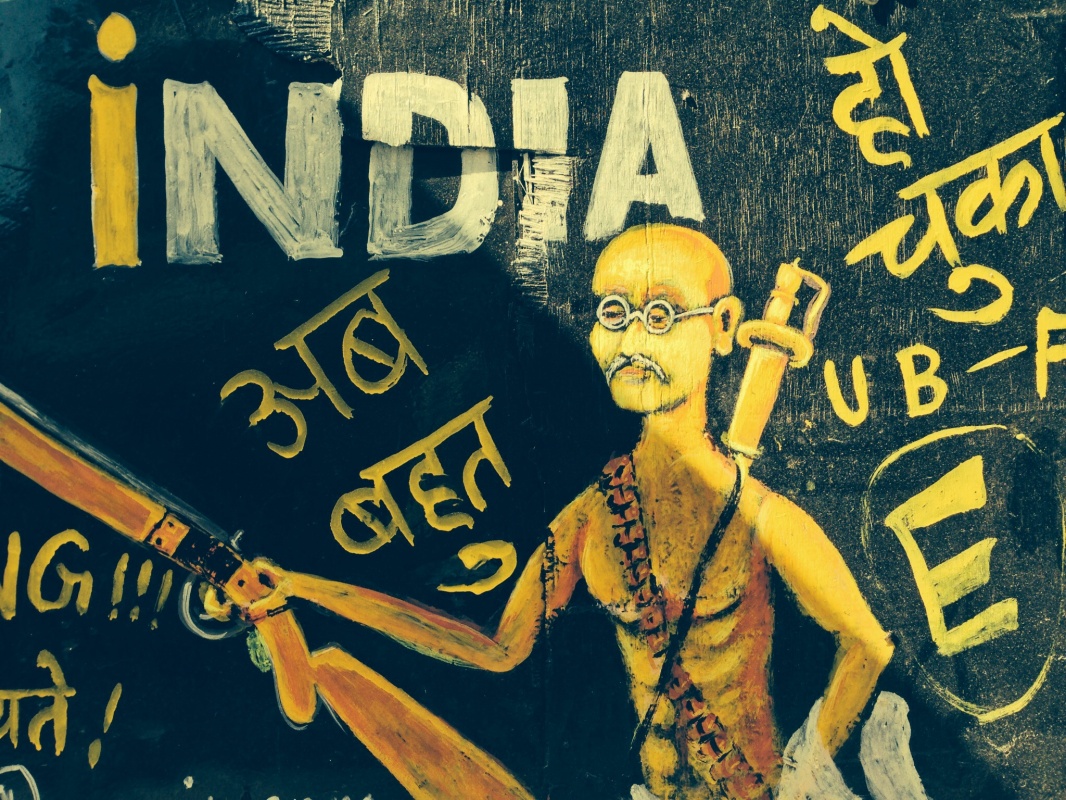 iNDIA
अब
बहुत
हो
चुका
UB-
E
NG!!!
यते!